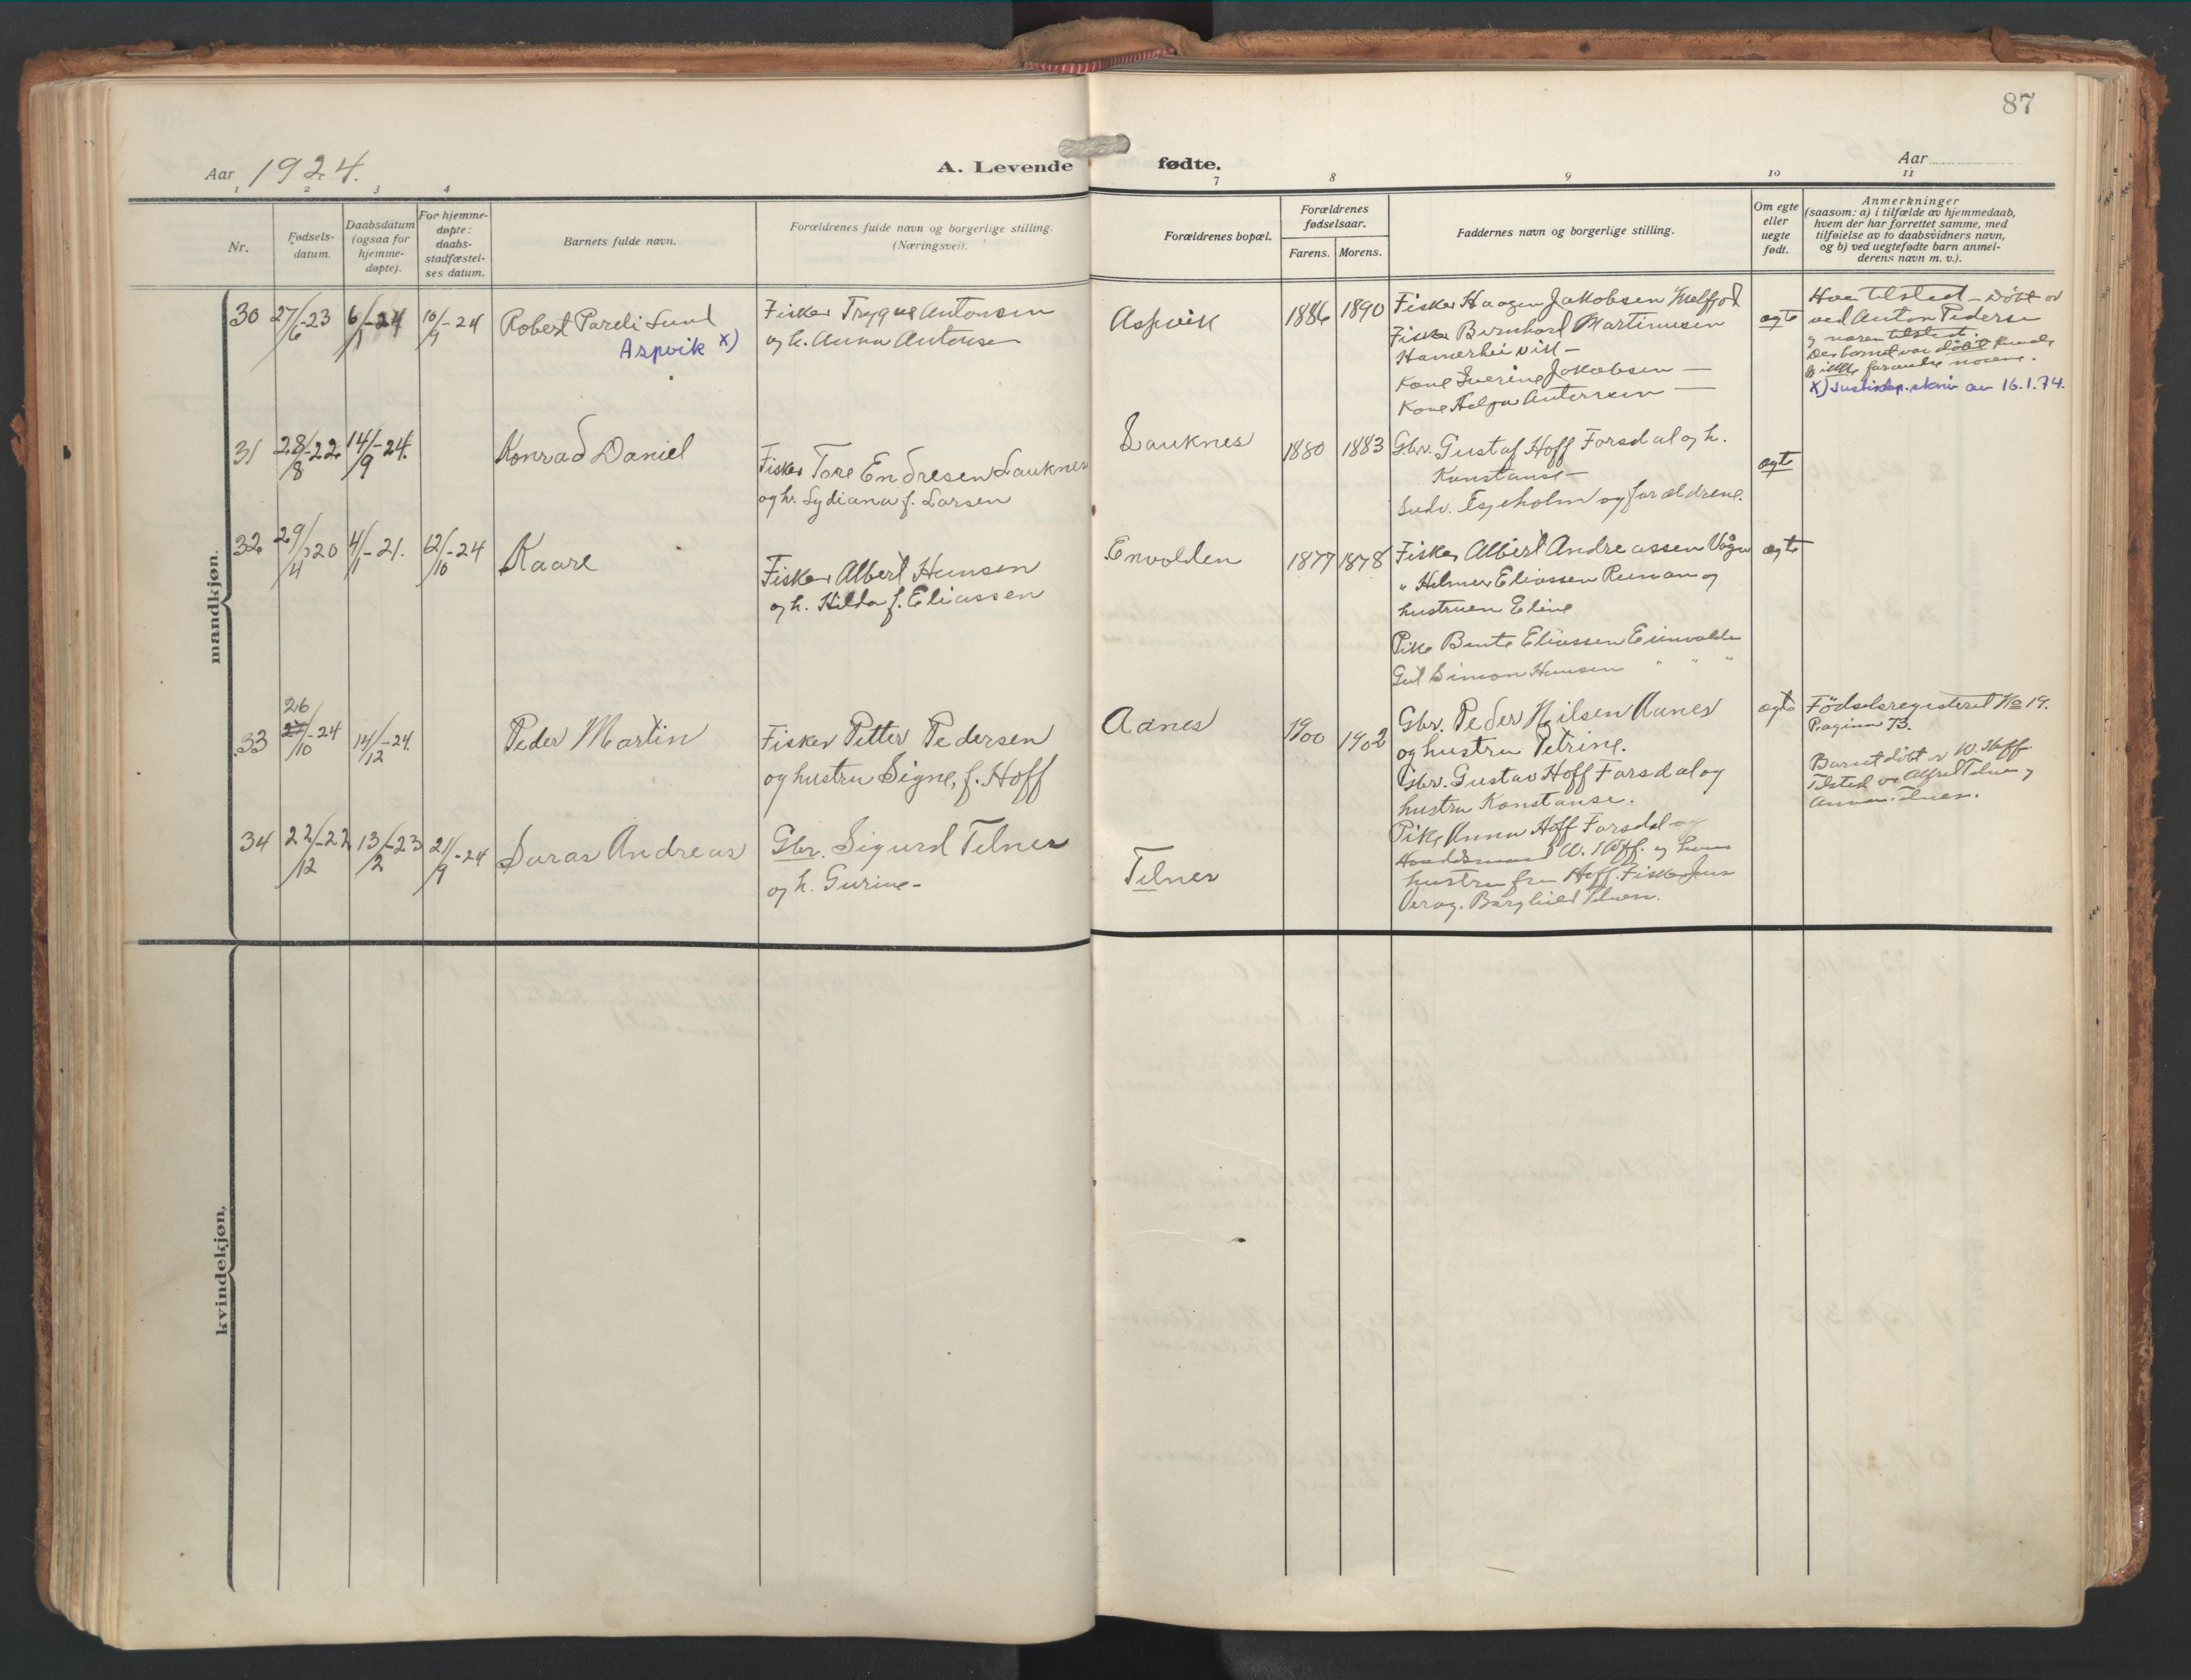 87
Aar 1924.
A. Levende fødte.
Aar
1 2 3 4 7 8 9 10 11
Nr.
Fødsels-
datum.
Daabsdatum
(ogsaa for
hjemme-
døpte).
For hjemme-
døpte:
daabs-
stadfæstel-
ses datum.
Barnets fulde navn.
Forældrenes fulde navn og borgerlige stilling.
(Næringsvei).
Forældrenes bopæl.
Forældrenes
fødselsaar.
Farens. Morens.
Faddernes navn og borgerlige stilling.
Om egte
eller
uegte
født.
Anmerkninger
(saasom: a) i tilfælde av hjemmedaab,
hvem der har forrettet samme, med
tilføielse av to daabsvidners navn,
og b) ved uegtefødte barn anmel-
derens navn m. v.).
mandkjøn.
30 27/6-23 6/1-24 10/9-24
Robert Pareli Sund
Aspvik x)
Fisker Trygve Antonsen
og h. Anna Antonsen
Aspvik
1886 1890
Fisker Haagen Jakobsen Melfjod
Fisker Bernhard Martinusen
Hamerheivik -
Kone Jakobsen -
Kone Helga
egte
ved Anton Pederse
x) Justisdep. skriv av 16.1.74.
31 28/8-22 14/9-24.
Konrad Daniel
Fisker Tore Endresen Lauknes
og h. Lydiana f. Larsen
Lauknes
1880 1883
Gbr. Gustaf Hoff Forsdal og h.
Konstanse -
og forældrene.
egte
32 29/4 20 4/1-21. 12/10-24
Kaare
Fisker Albert Hansen
og h. Hilda f. Eliassen
Envolden
1877 1878
Fisker Albert Andreassen Vågen
" Helmer Eliassen og
hustruen Eline
Pike Bente Eliassen
Simon Hansen " " "
egte
33 26 27/10-24 14/12-24.
Peder Martin
Fisker Petter Pedersen
og hustru Signe, f. Hoff
Aanes
1900 1902
Gbr. Peder Nilsen Aanes
og hustru Petrine.
Gbr. Gustav Hoff Forsdal og
hustru Konstanse.
Pike Anna Hoff Forsdal og
egte
Fødselsregisteret No 19.
Pagina 73.
34 22/12-22 13/2-23 21/9-24
Saras Andreas
Gbr. Sigurd Telnes
og h. Gurine -
Telnes
hustru fra Hoff. Fisker Jens
kvindekjøn,